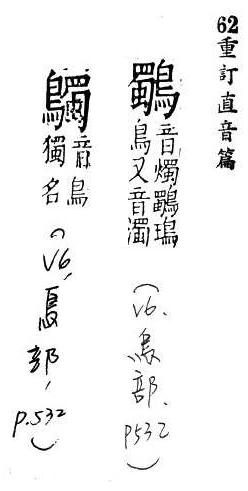 62重訂直音篇
鸀
音燭鸀瑦
鳥又音濁
(V6.鳥部.P532)
音獨鳥名
(V6,鳥部,P.532)